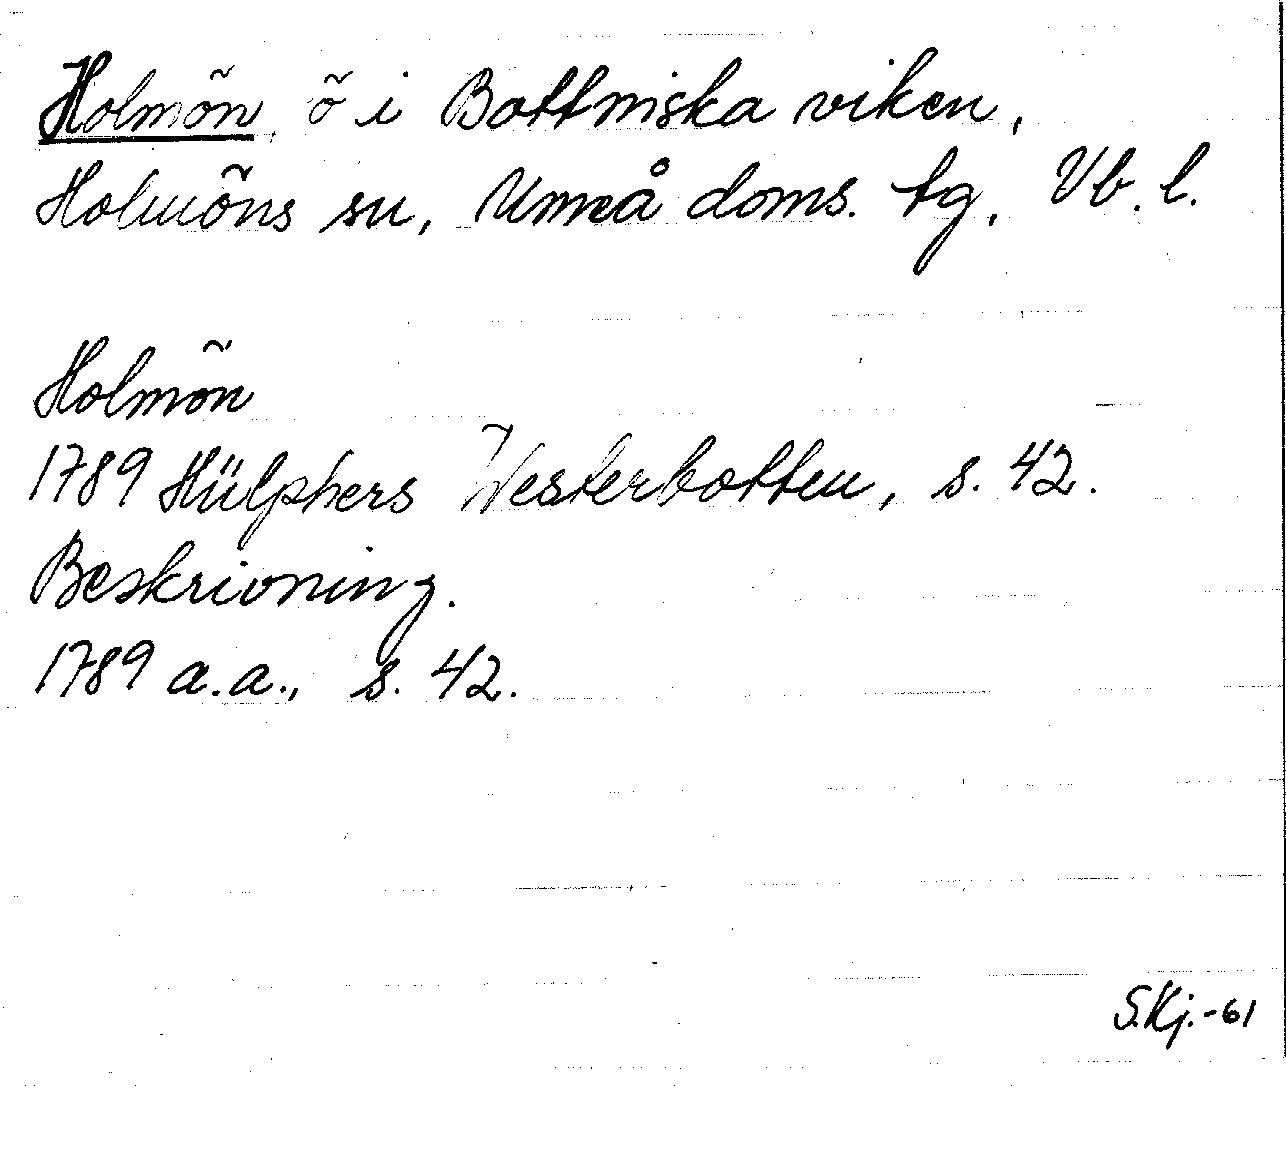 Holmön, ö i Bottniska viken,
Holmöns sn, Umeå doms. tg, Vb. l.
Holmön
1789 Hülphers Westerbotten, s. 42.
Beskrivning.
1789 a.a., s. 42.
S.Kj.-61